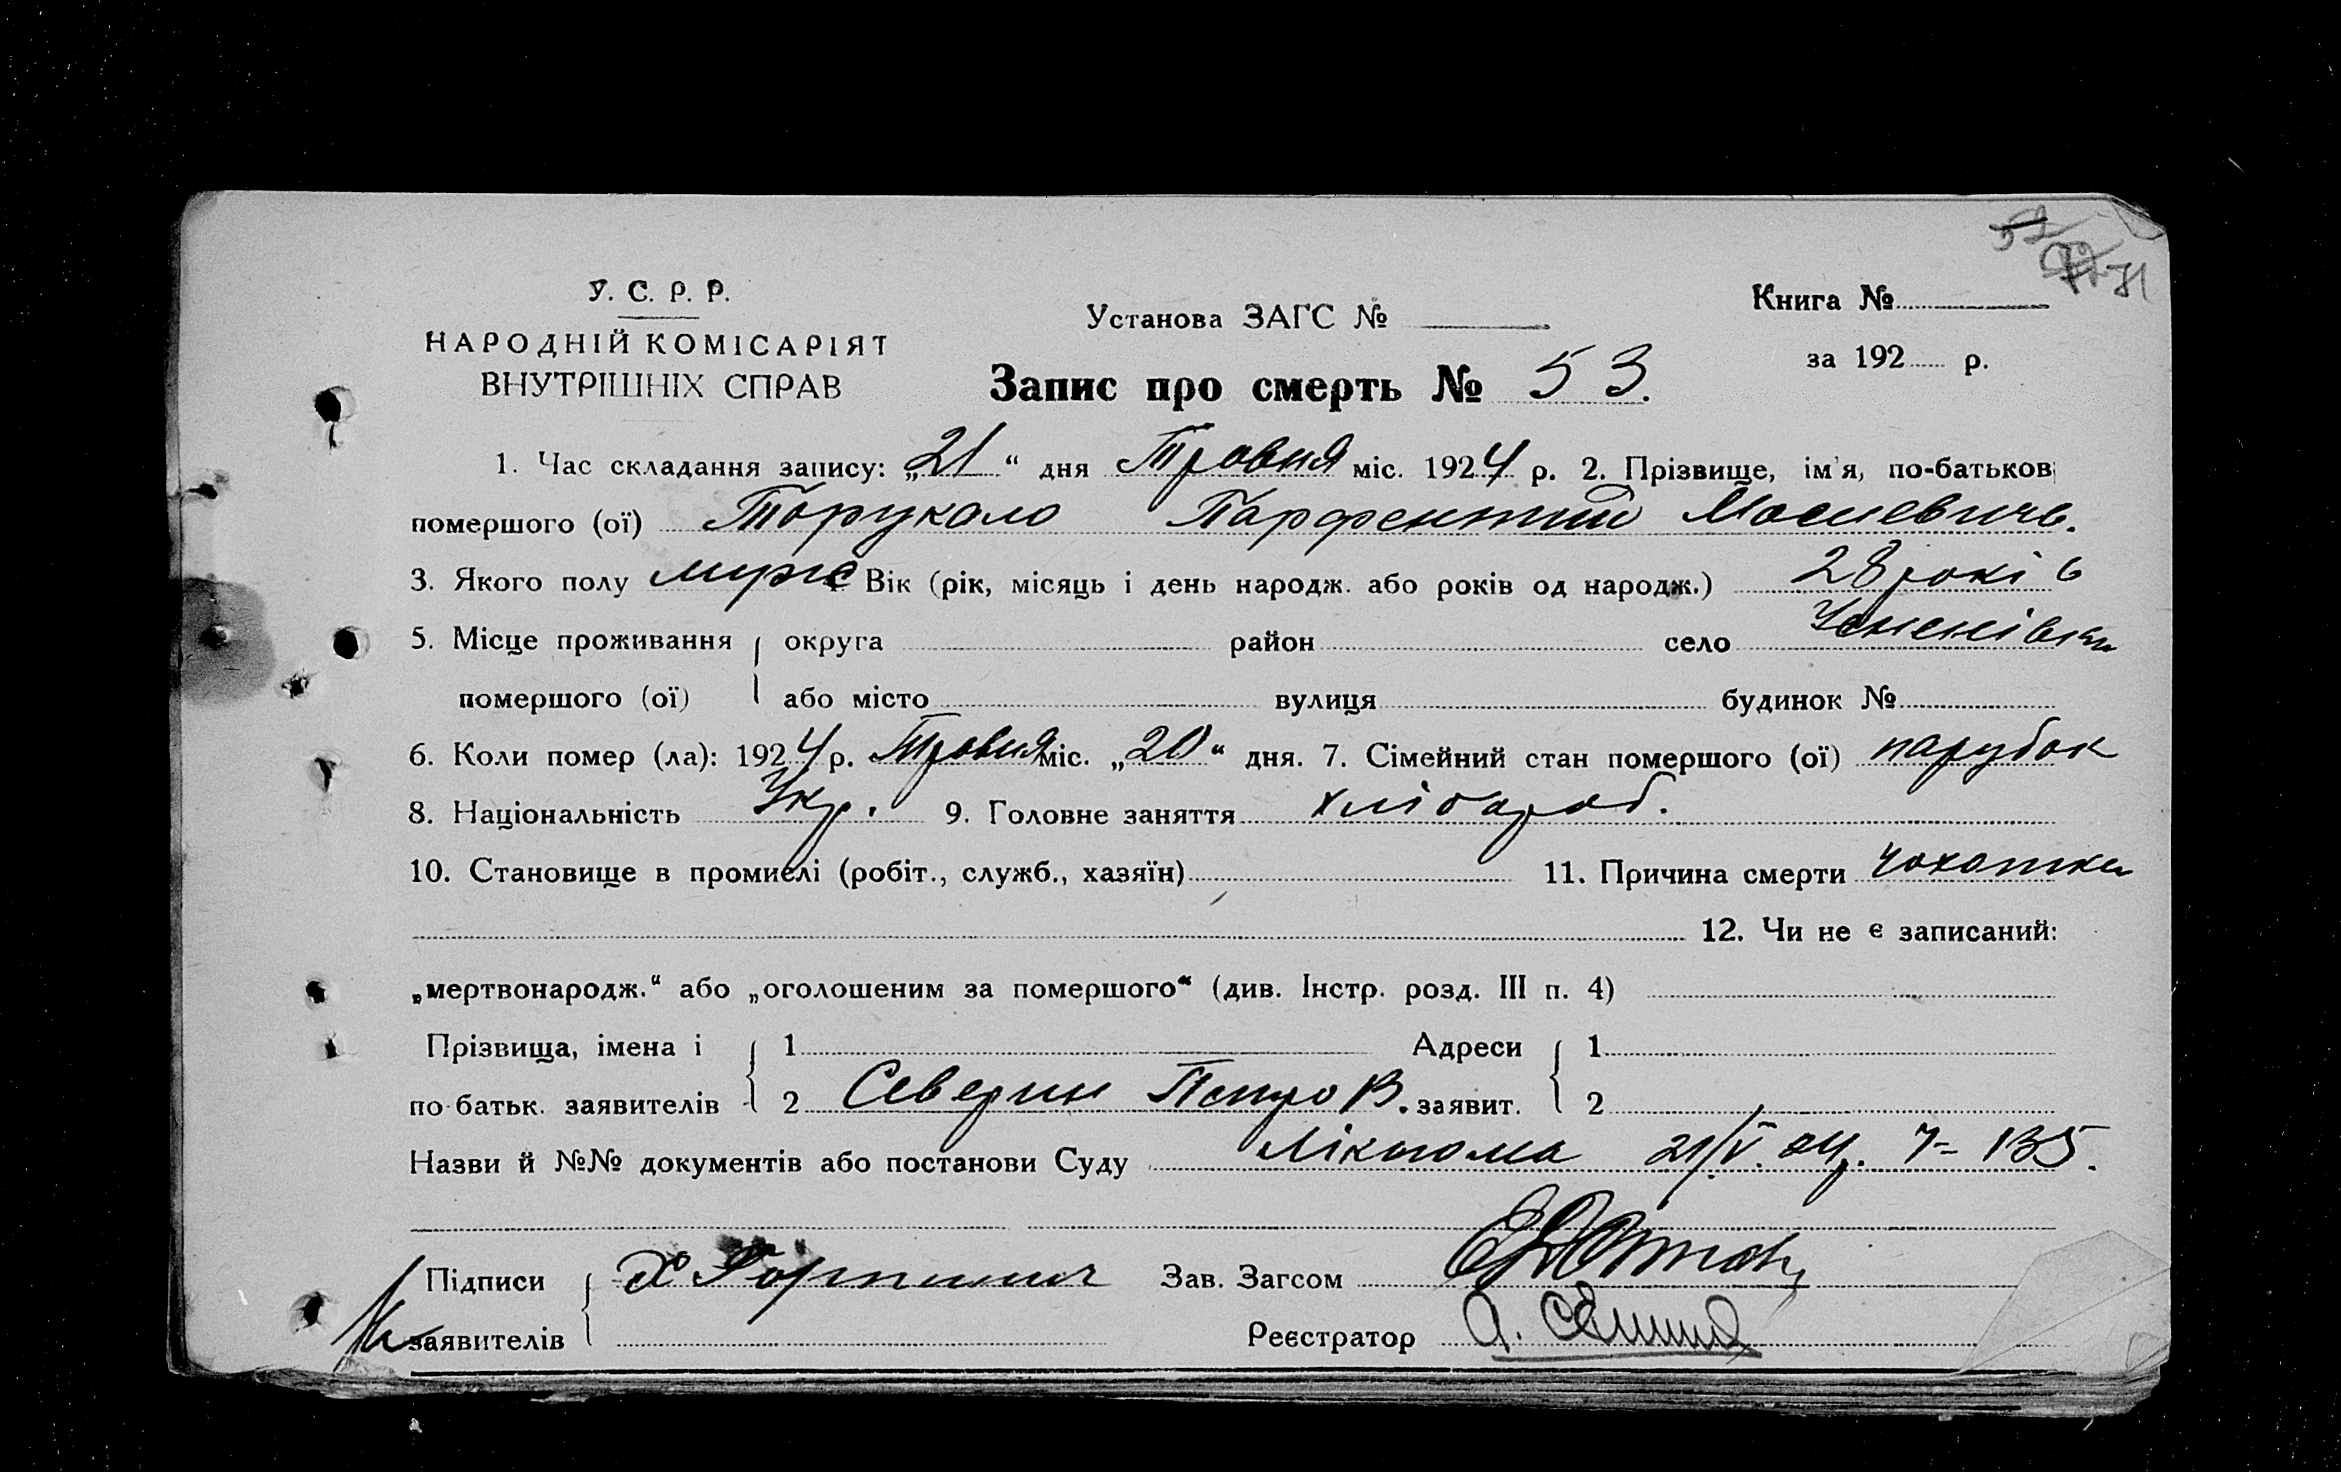 У. С. Р. Р.
НАРОДНІЙ КОМІСАРІЯТ
ВНУТРІШНІХ СПРАВ
Установа ЗАГС №
Книга №
за 192 р.
Запис про смерть № 53.
1. Час складання запису: „21“ дня Травня міс. 1924 р. 2. Прізвище, ім'я, по-батькові
помершого (ої) Торукало Парфентий Мосиевичь.
3. Якого полу мужс Вік (рік, місяць і день народж. або років од народж.) 28 років
5. Місце проживання округа район село
помершого (ої) або місто вулиця будинок №
6. Коли помер (ла): 1924 р. Травня міс. „20“ дня. 7. Сімейний стан помершого (ої) парубок
8. Національність Укр. 9. Головне заняття хлібароб.
10. Становище в промислі (робіт., служб., хазяїн) 11. Причина смерти чохотка
12. Чи не є записаний:
„мертвонародж.“ або „оголошеним за помершого“ (див. Інстр. розд. III п. 4)
Прізвища, імена і 1 Адреси 1
по-батьк. заявителів 2 Северин Петро В. заявит. 2
Назви й №№ документів або постанови Суду 21/V. 24р. 7- 135.
Підписи Зав. Загсом
заявителів Реєстратор